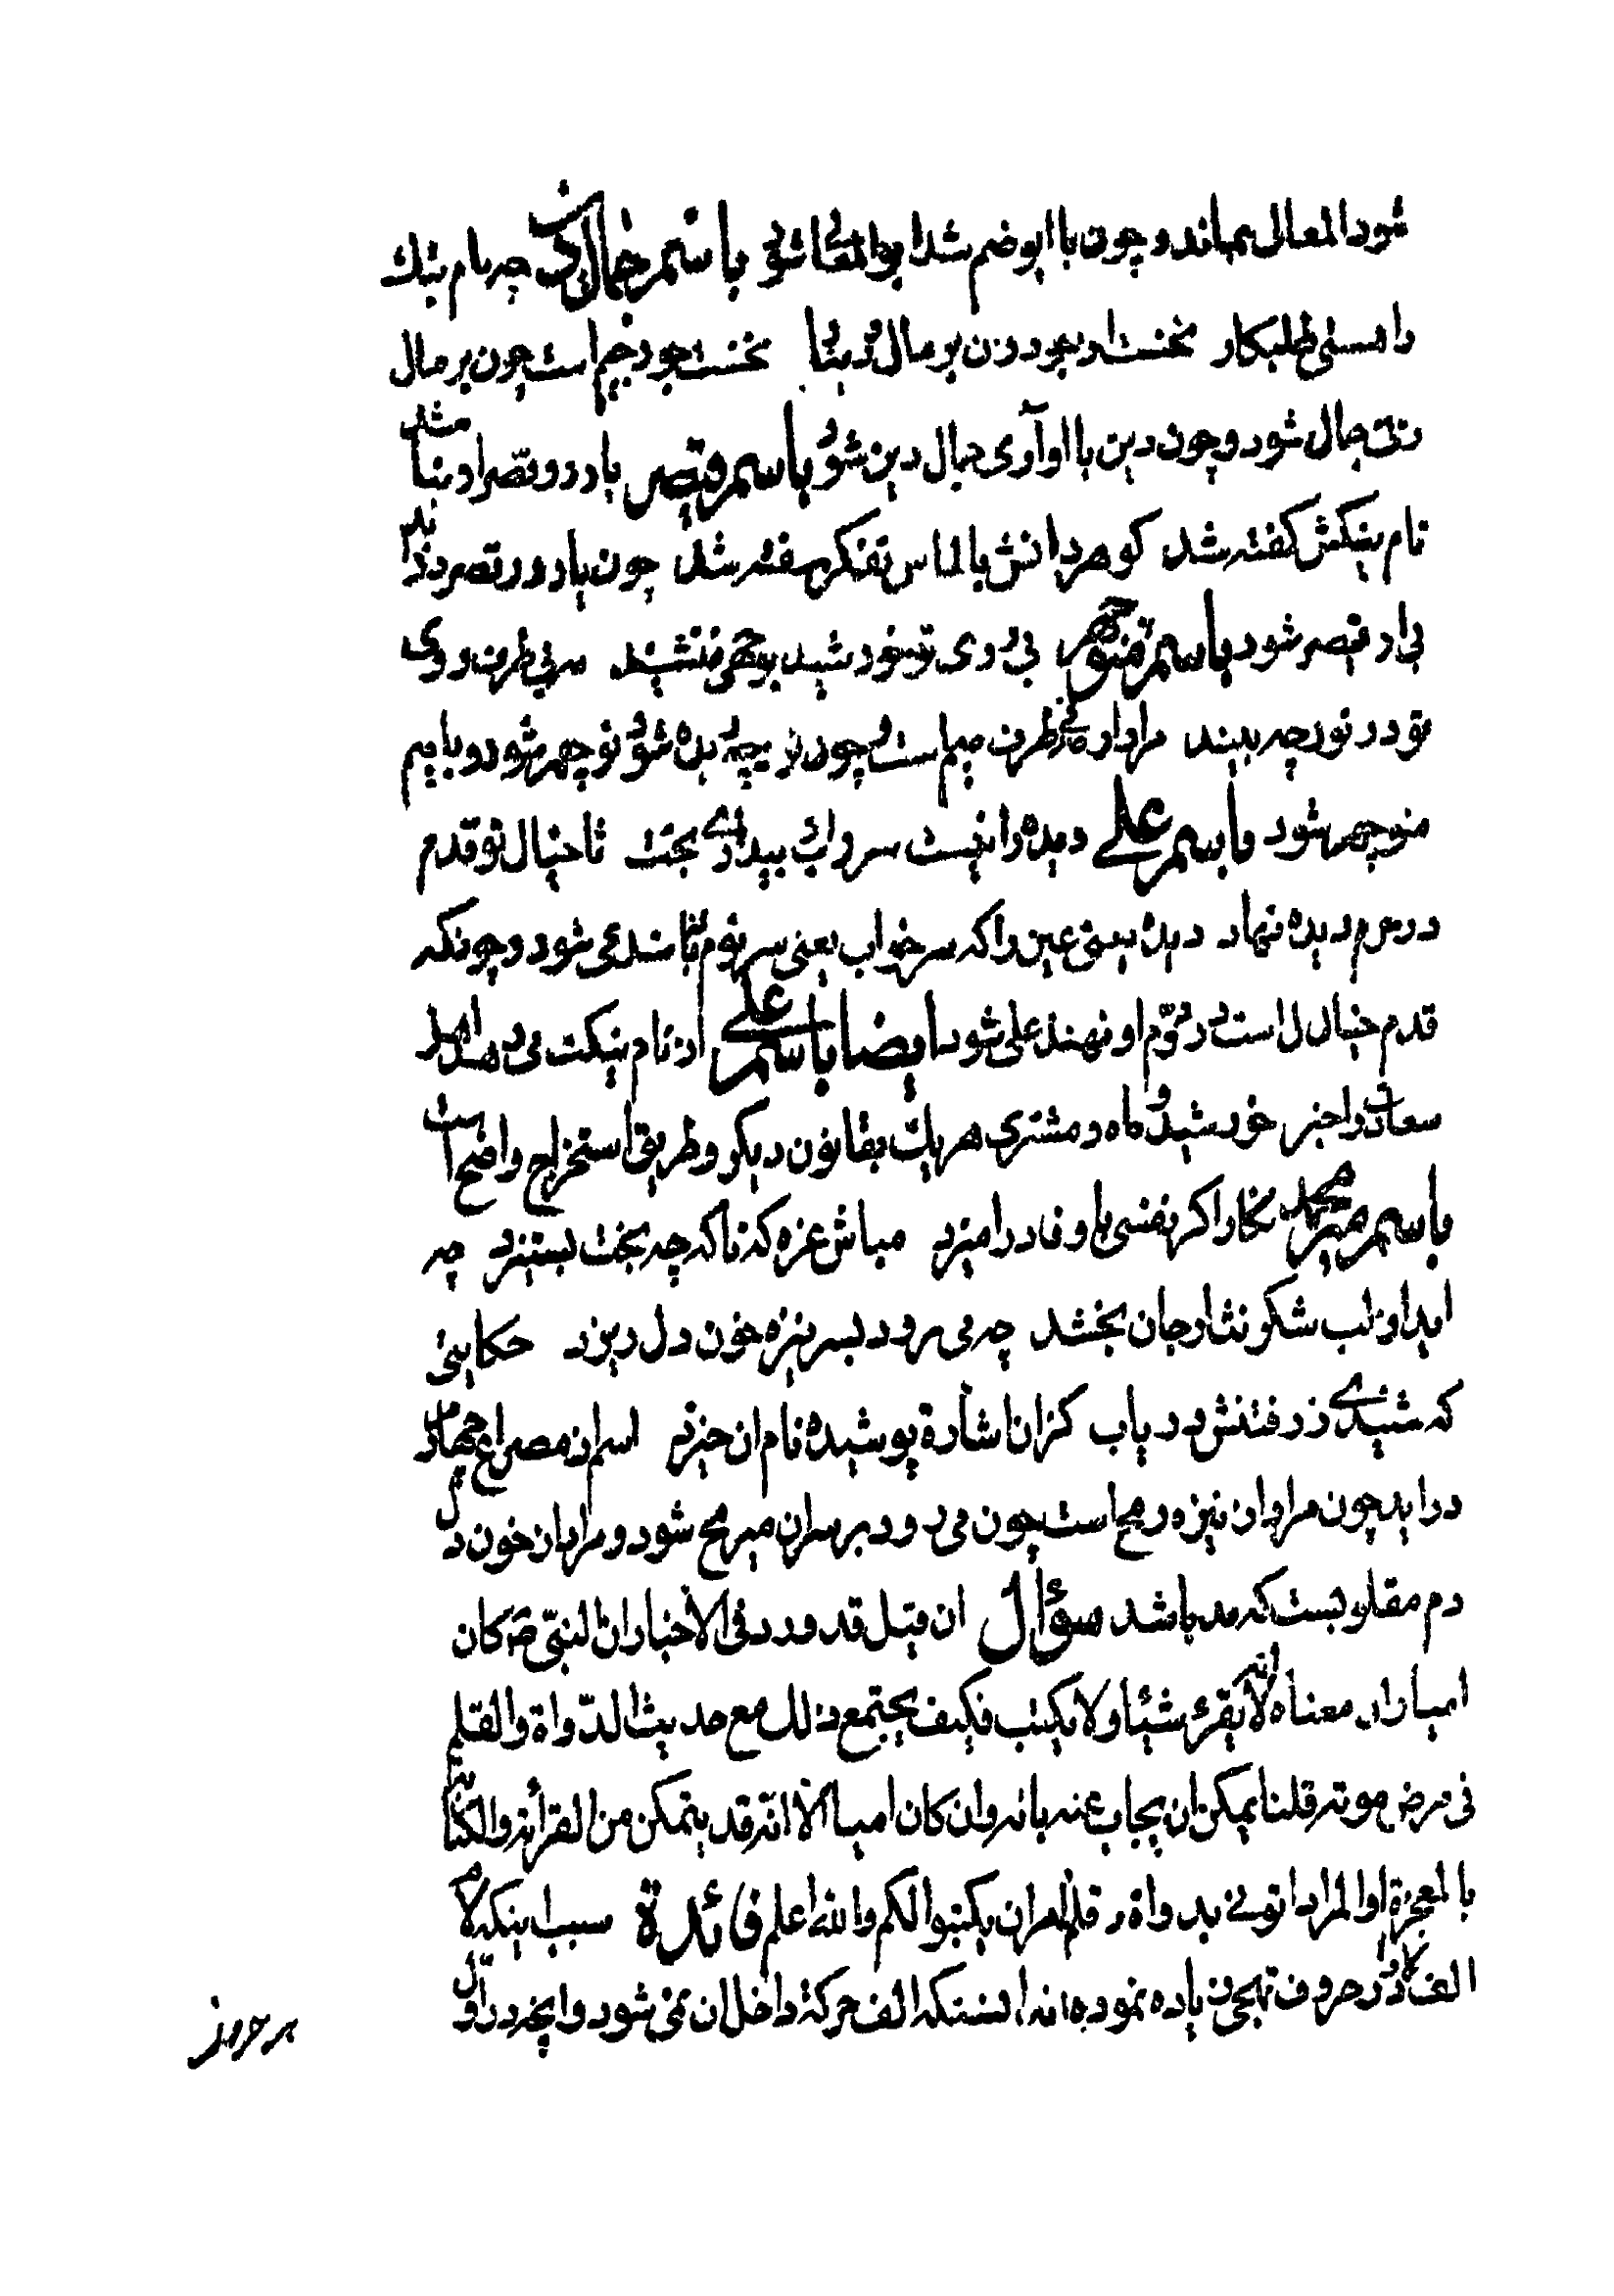 شود المعال بماند و چون با ابو ضم شد ابوالمعالی شود باسم جمال دین چه نام نیك
را هستی طلبکار نخست از جود زن بر مال و دینار نخست جود جیم است چون بر مال
زنی جمال شود و چون دین با او آری جمال دین شود باسم قیصر یا در و قصر او بنا شد
نام نیکش کفته شد کوهر دانش بالماس تفکر سفته شد چون یا در و قصر در اید
بی ار قیصر شود باسم منوچهر بی روی تو خورشید بوجهی ننشیند سر بی طرف روی
تو در نور چه بیند مراد از سر بی طرف میم است و چون نور بچه دیده شود نوچهر شود و با میم
منوچهر شود باسم علی دیده را نیست سر خواب بیداری بخت تا خیال تو قدم
در حرم دیده نهاد دیده یعنی عین را که سر خواب یعنی سر نوم نباشد عی شود و چونکه
قدم خیال ل است در حرم او نهند علی شود ایضا باسم علی از نام نیکت می دهد اهل
سعادت را خبر خورشید و ماه و مشتری هر یك بقانون دیکر و طریق استخراج واضح است
باسم میر محمد نکارا کر نفسی با وفا در امیزد مباش غره که ناکه چه بخت بستیزد چه
اید از لب شکر نثار جان بخشد چه می رود بسر نیزه خون دل ریزد حکایتی
که شنیدی ز رفتنش دریاب کزان اشارة پوشیده نام ان خیزد اسم از مصراع چهارم
در اید چون مراد از نیزه رمح است چون می رود بر سر ان میر مح شود و مراد از خون دل
دم مقلوبست که مد باشد سؤال ان قیل قد ورد فی الاخبار ان النبی ص کان
امیا و ان معناه انه لا یقرئ شیئا ولا یکتب فکیف یجتمع ذلك مع حدیث الدواة والقلم
فی مرض موته قلنا یمکن ان یجاب عنه بانه وان کان امیا الا انه قد یتمکن من القرائة والکتابة
بالمعجزة او المراد اتونی بدواة و قلم امر ان یکتبوا لکم والله اعلم فائدة سبب اینکه لام
الف را در حروف تهجی زیاده نموده اند انستکه الف حرکة داخل ان نمی شود وانچه در اول
هر حرف از